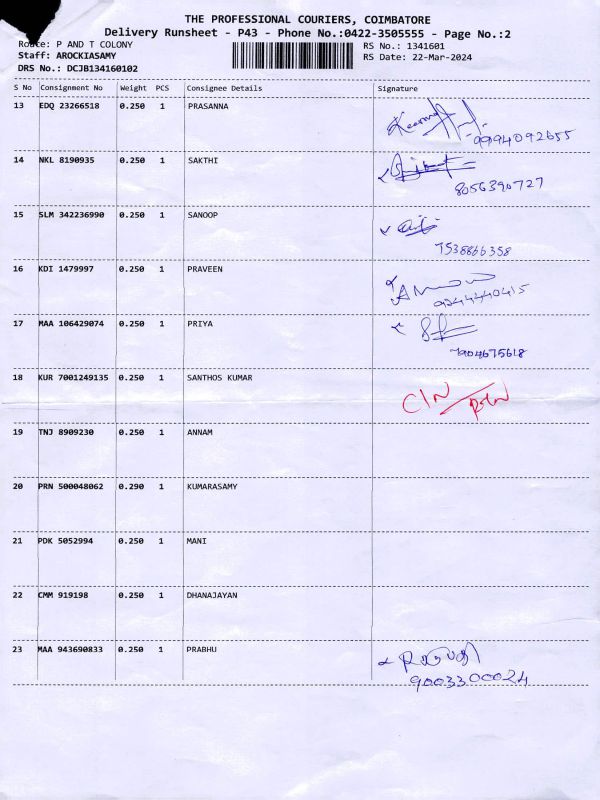 THE PROFESSIONAL COURIERS, COIMBATORE
Delivery Runsheet - P43 - Phone No.:0422-3505555 - Page No.:2
Route: P AND T COLONY RS No.: 1341601
Staff: AROCKIASAMY RS Date: 22-Mar-2024
DRS No.: DCJB134160102
S No Consignment No Weight PCS Consignee Details Signature
13 EDQ 23266518 0.250 1 PRASANNA
9994092655
14 NKL 8190935 0.250 1 SAKTHI
8056390727
15 SLM 342236990 0.250 1 SANOOP
7538866358
16 KDI 1479997 0.250 1 PRAVEEN
9244440415
17 MAA 106429074 0.250 1 PRIYA
7904675618
18 KUR 7001249135 0.250 1 SANTHOS KUMAR
19 TNJ 8909230 0.250 1 ANNAM
20 PRN 500048062 0.290 1 KUMARASAMY
21 PDK 5052994 0.250 1 MANI
22 CMM 919198 0.250 1 DHANAJAYAN
23 MAA 943690833 0.250 1 PRABHU
9003300024